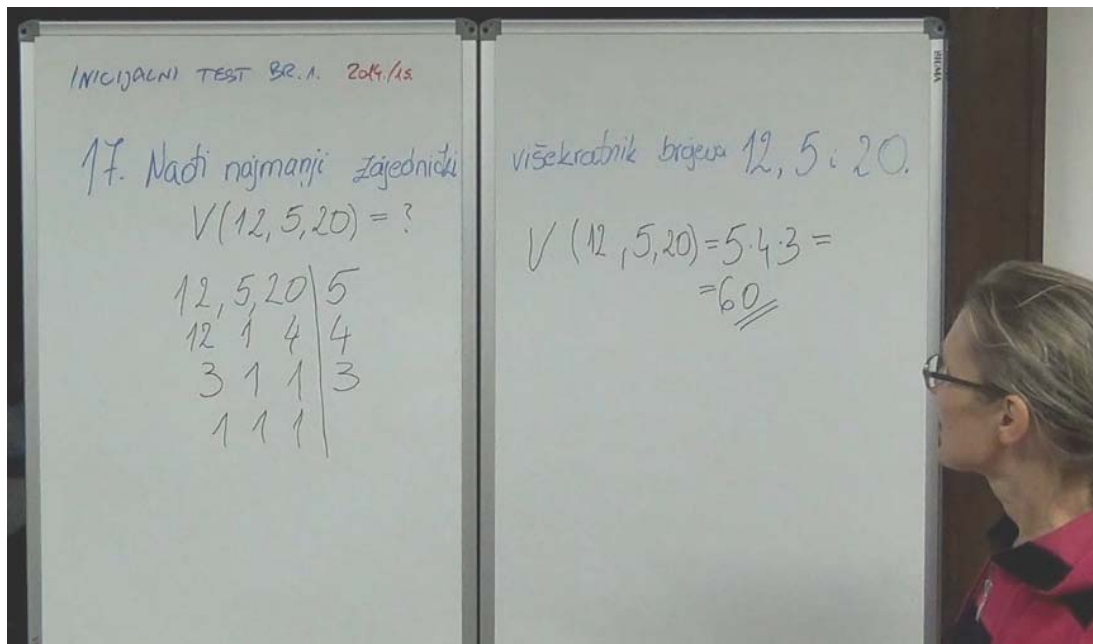 INICIJALNI TEST BR. 1. 2014./15.
17. Nađi najmanji zajednički višekratnik brojeva 12, 5 i 20.
V(12, 5, 20) = ?
12, 5, 20 | 5
12 1 4 | 4
3 1 1 | 3
1 1 1 |
V (12, 5, 20) = 5·4·3 =
= 60